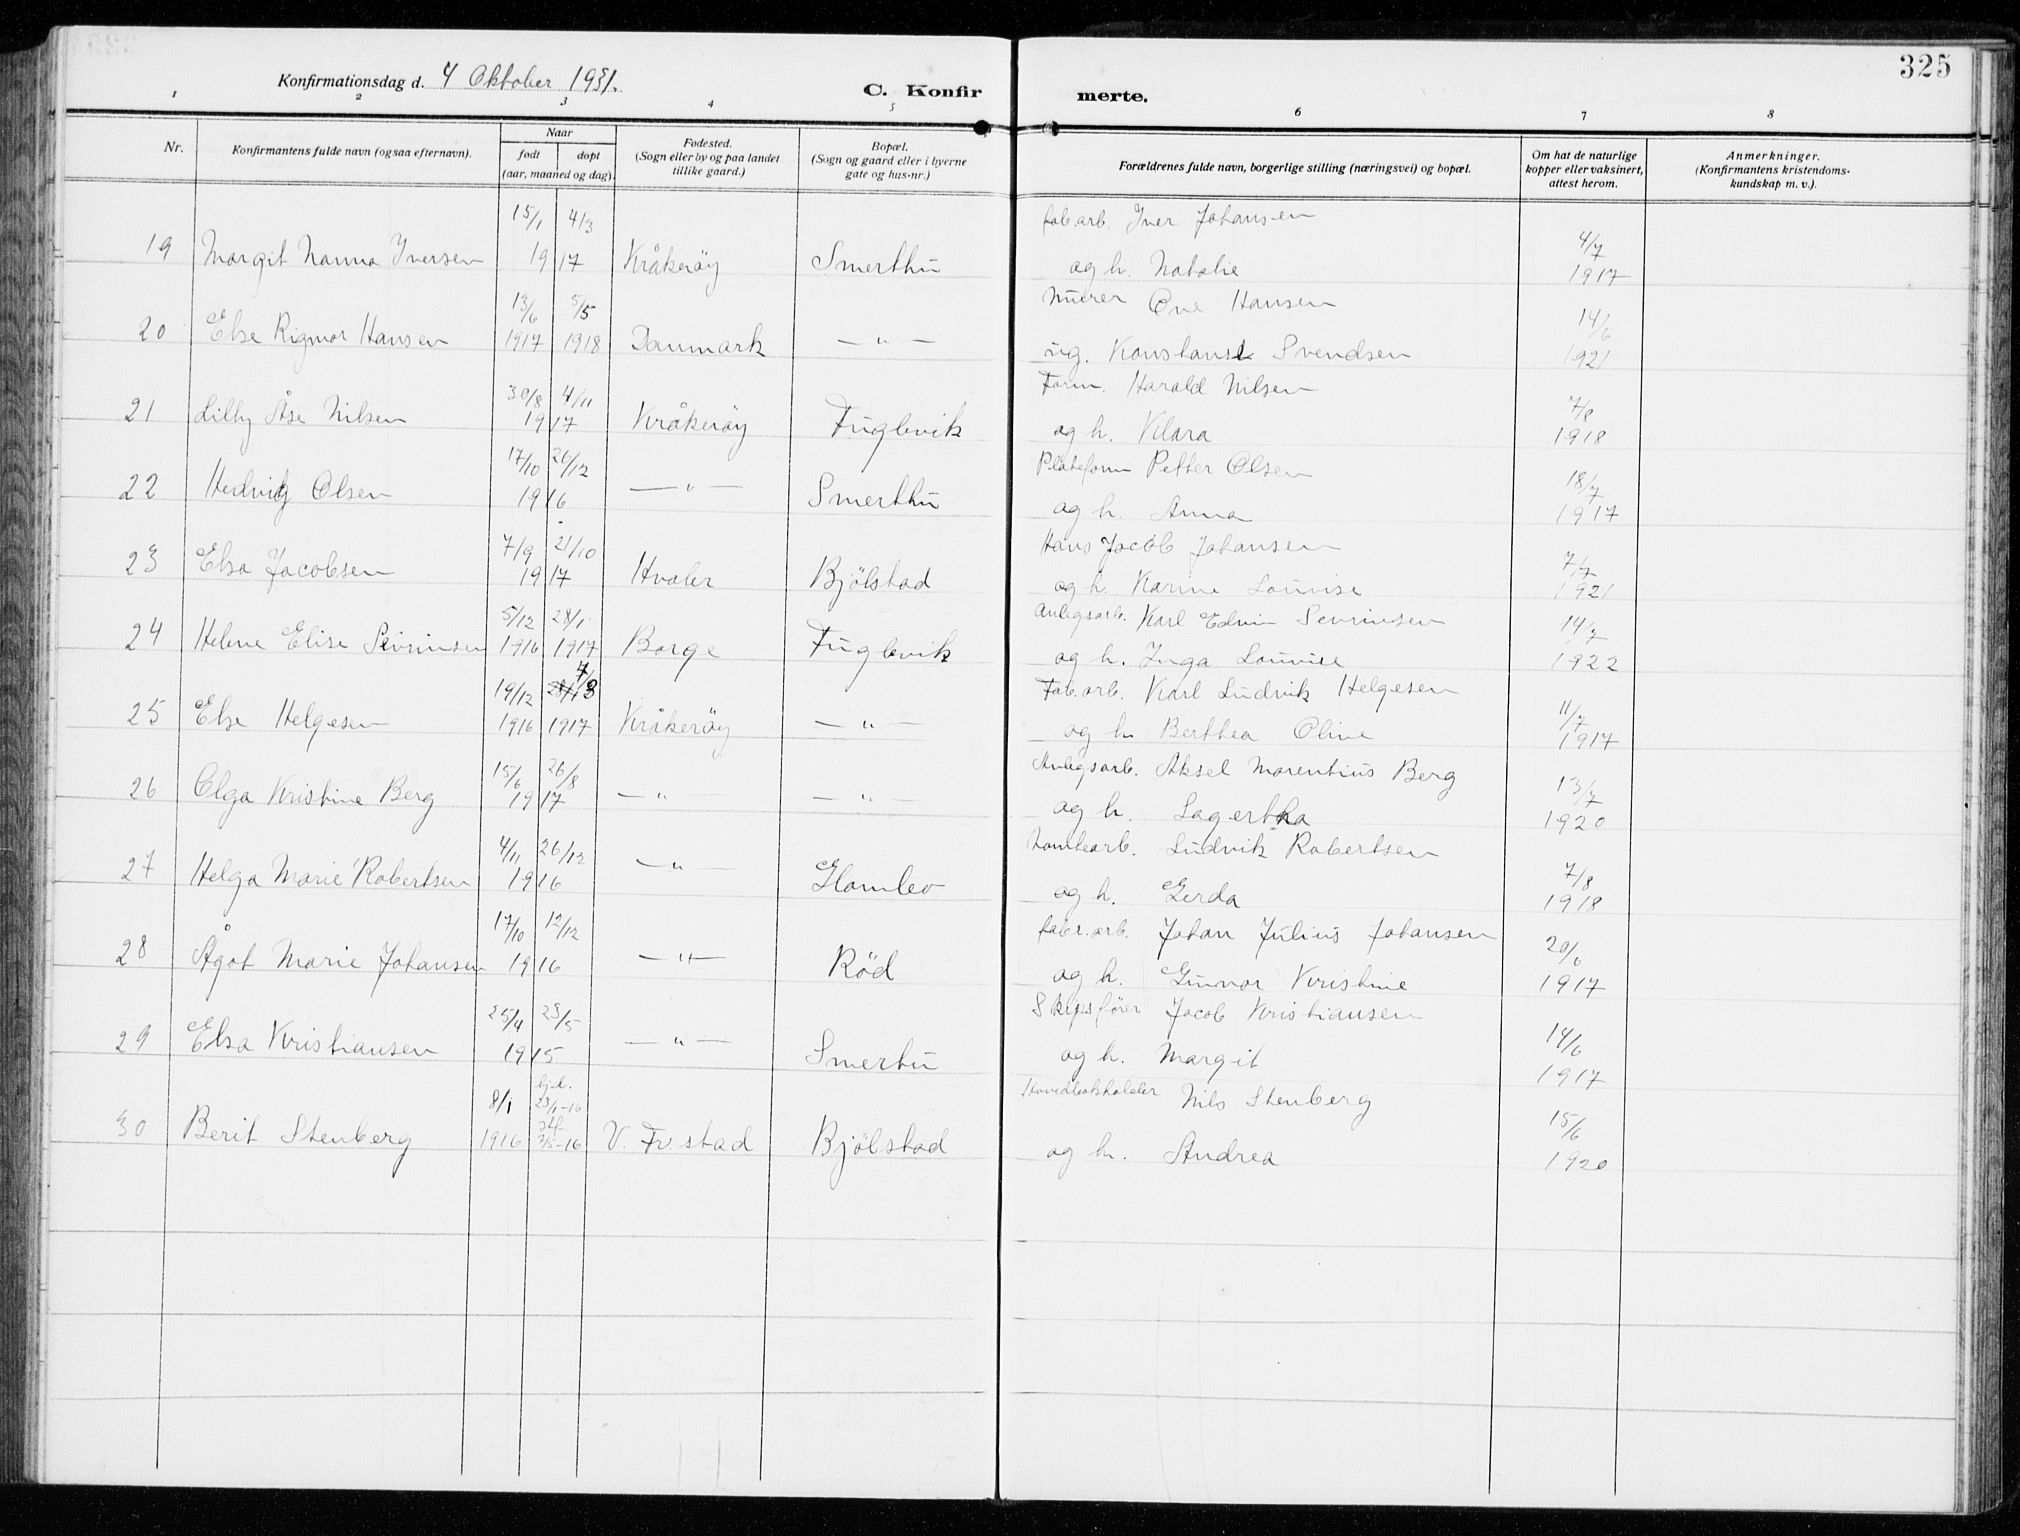 325
Konfirmationsdag d. 4 Oktober 1931.
C. Konfirmerte.
1 2 3 4 5 6 7 8
Nr.
Konfirmantens fulde navn (ogsaa efternavn).
Naar
født døpt
(aar, maaned og dag).
Fødested.
(Sogn eller by og paa landet
tillike gaard.)
Bopæl.
(Sogn og gaard eller i byerne
gate og hus-nr.)
Forældrenes fulde navn, borgerlige stilling (næringsvei) og bopæl.
Om hat de naturlige
kopper eller vaksinert,
attest herom.
Anmerkninger.
(Konfirmantens kristendoms-
kundskap m. v.).
15/1 4/3 fab.arb. Iver Johansen
19 Margit Nanna Iversen 19 17 Kråkeröy Smerthu og h. Natalie 4/7 1917
13/6 5/5 Murer Ove Hansen
20 Else Rigmor Hansen 1917 1918 Danmark — " — ug. Konstanse Svendsen 14/6 1921
30/8 4/11 Form. Harald Nilsen
21 Lilly Åse Nilsen 19 17 Kråkeröy Fuglevik og h. Klara 7/8 1918
17/10 26/12 Plateform Petter Olsen
22 Hedvig Olsen 19 16 — " — Smerthu og h. Anna 18/7 1917
7/9 21/10 Hans Jacob Johansen
23 Elsa Jacobsen 19 17 Hvaler Bjölstad og h. Karine Louvise 7/7 1921
5/12 28/1 Anlegsarb. Karl Edvin Sevrinsen
24 Helene Elise Sevrinsen 1916 1917 Borge Fuglevik og h. Inga Louvise 14/7 1922
19/12 4/3 Fab.arb. Karl Ludvik Helgesen
25 Else Helgesen 1916 1917 Kråkeröy — " — og h. Berthea Oline 11/7 1917
15/6 26/8 Anlegsarb. Aksel Marentius Berg
26 Olga Kristine Berg 19 17 — " — — " — og h. Lagertha 13/7 1920
4/11 26/12 Tomtearb. Ludvik Robertsen
27 Helga Marie Robertsen 19 16 — " — Glomlev og h. Gerda 7/8 1918
17/10 12/12 fabr.arb. Johan Julius Johansen
28 Ågot Marie Johansen 19 16 — " — Röd og h. Gunvor Kristine 20/6 1917
25/4 23/5 Skipsförer Jacob Kristiansen
29 Elsa Kristiansen 19 15 — " — Smertu og h. Margit 14/6 1917
8/1 hjd. 23/1-16 Hovedbokholder Nils Stenberg
30 Berit Stenberg 1916 stf. 7/5-16 V. Fr.stad Bjölstad og h. Andrea 15/6 1920